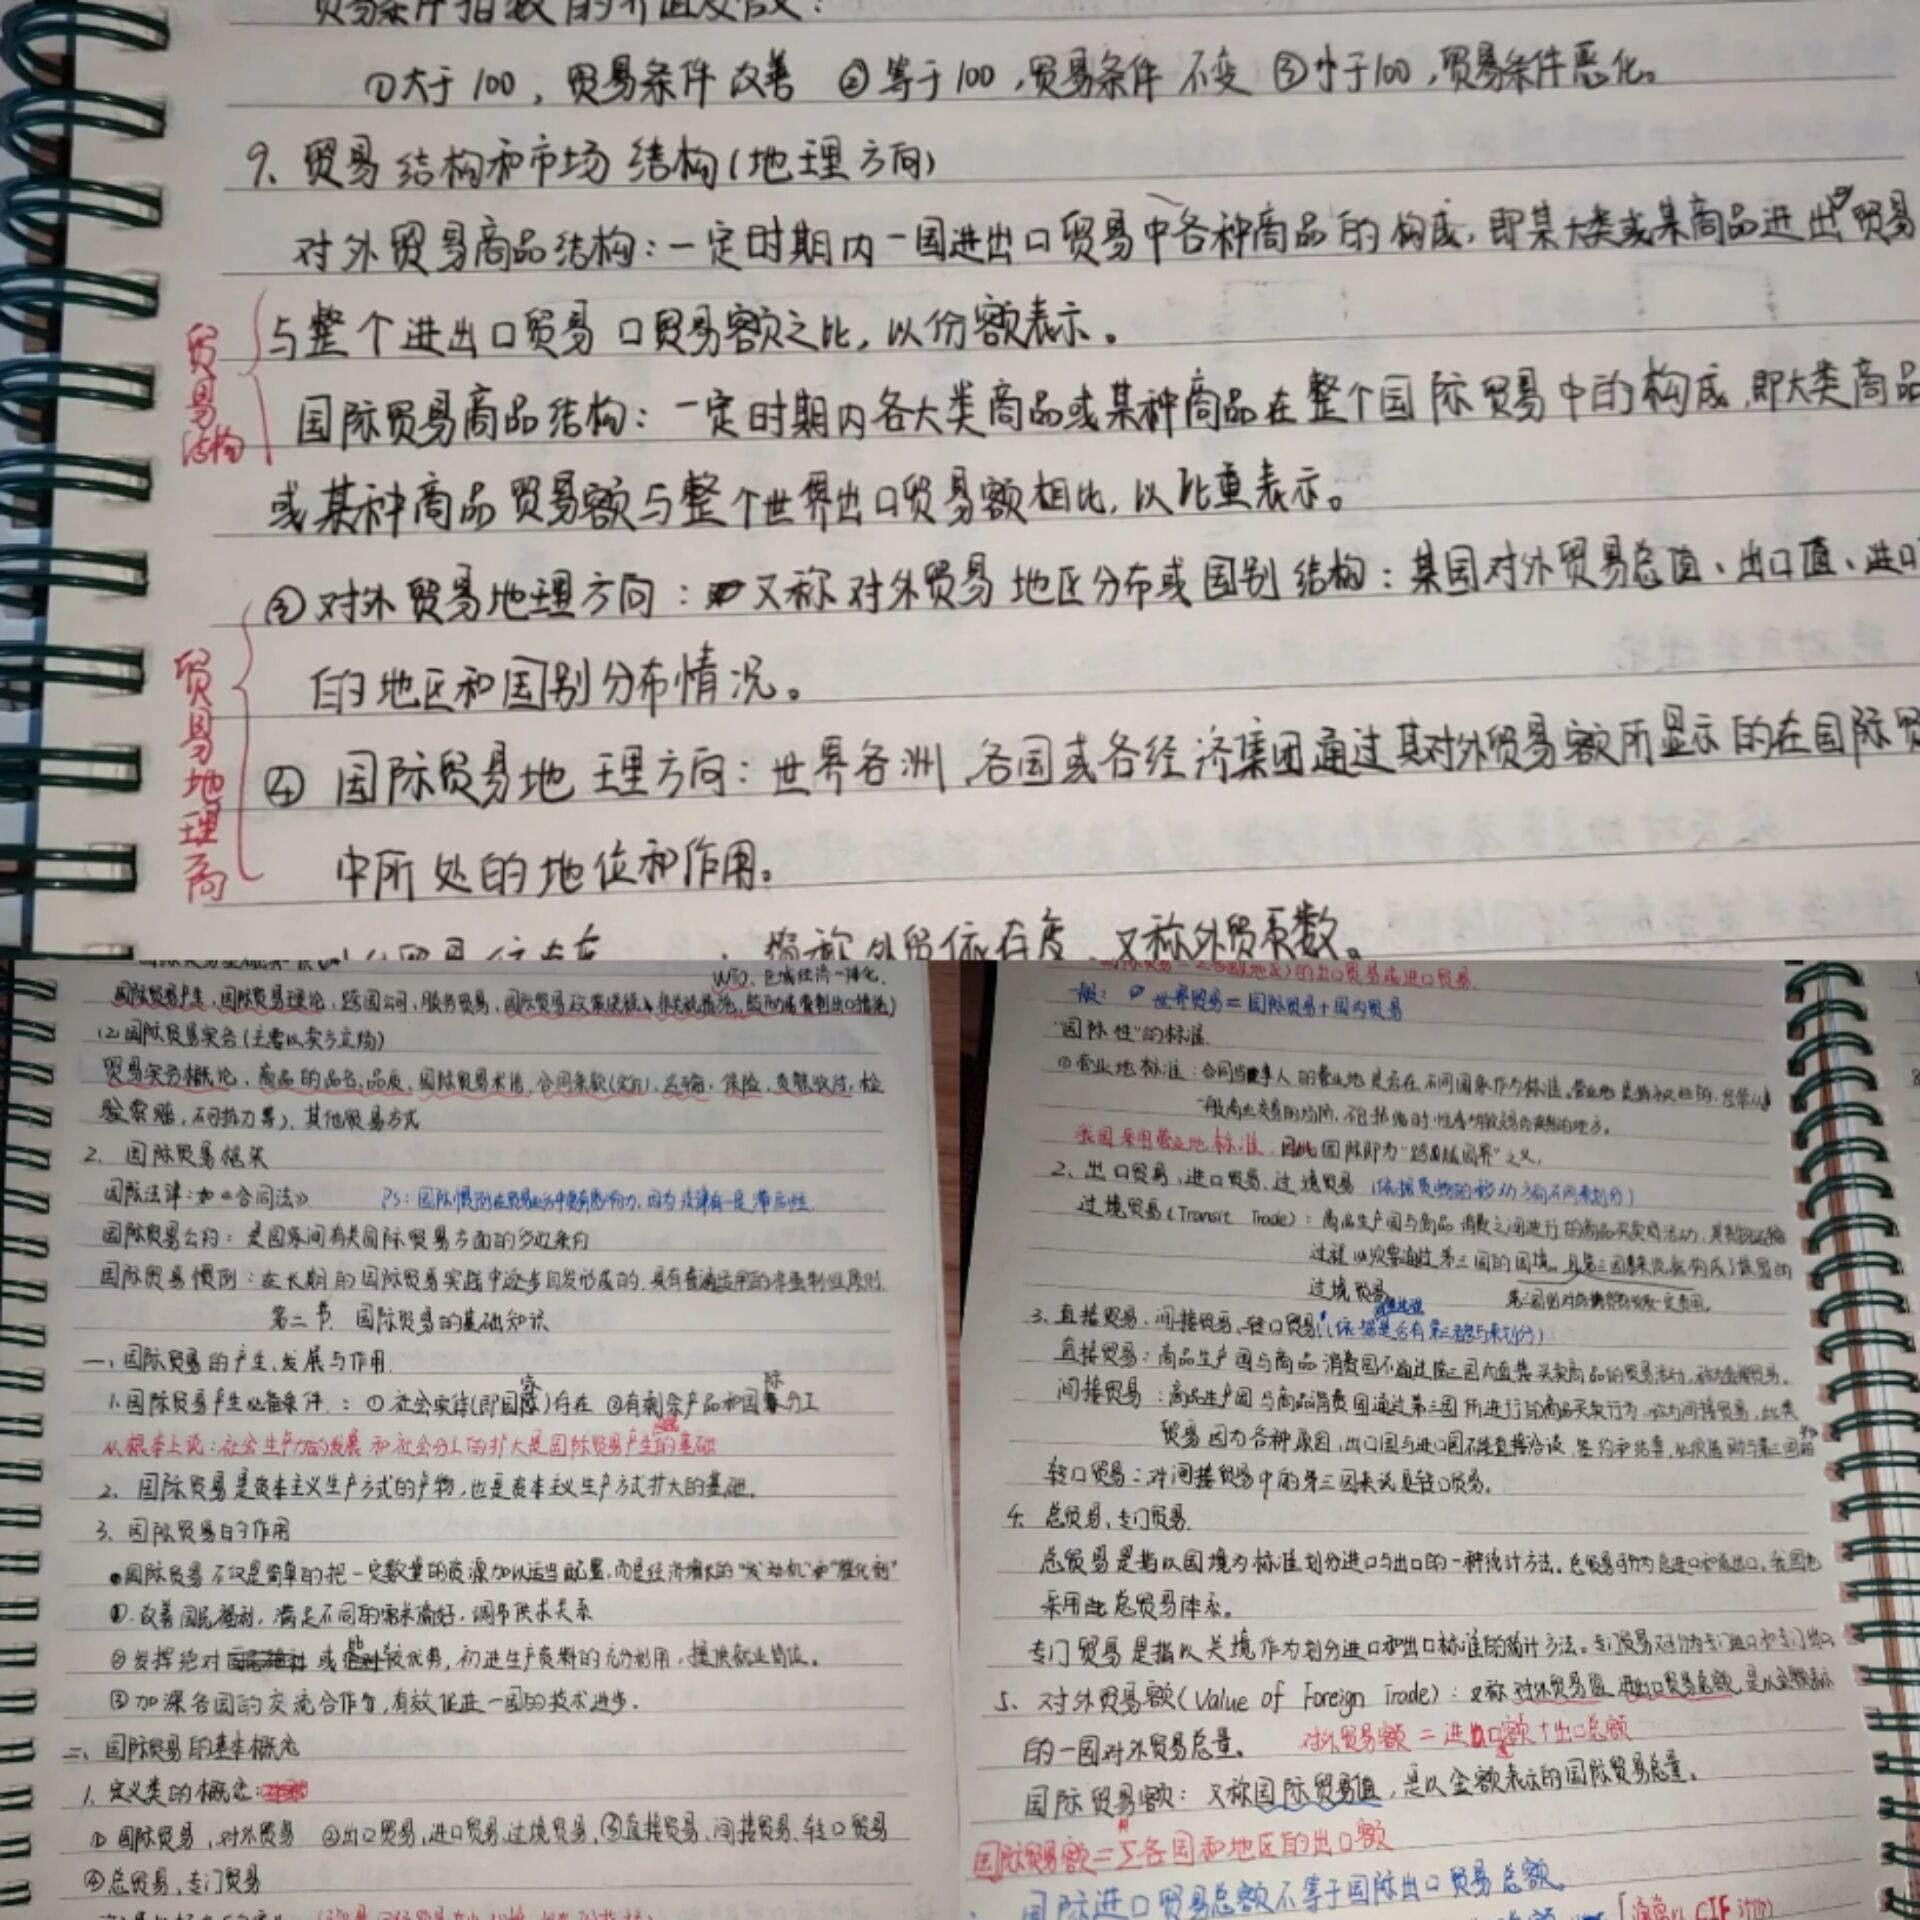 贸易条件指数的
①大于100，贸易条件改善 ②等于100，贸易条件不变 ③小于100，贸易条件恶化。
9、贸易结构和市场结构(地理方向)
对外贸易商品结构：一定时期内一国进出口贸易中各种商品的构成，即某大类或某商品进出口贸易
与整个进出口贸易口贸易额之比，以份额表示。
贸易结构
国际贸易商品结构：一定时期内各大类商品或某种商品在整个国际贸易中的构成，即大类商品
或某种商品贸易额与整个世界出口贸易额相比，以比重表示。
③对外贸易地理方向：又称对外贸易地区分布或国别结构：某国对外贸易总值、出口值、进口
的地区和国别分布情况。
贸易地理方向
④ 国际贸易地理方向：世界各洲、各国或各经济集团通过其对外贸易额所显示的在国际贸
中所处的地位和作用。
简称外贸依存度、又称外贸系数。
WTO、区域经济一体化、
国际贸易产生，国际贸易理论，跨国公司，服务贸易，国际贸易政策
(2)国际贸易实务(主要以卖方立场)
贸易实务概论，商品的品名、品质，国际贸易术语，合同条款，运输，保险，检
验索赔，不可抗力等)，其他贸易方式
2、国际贸易框架
国际法律：如《合同法》 PS：国际惯例在贸易
国际贸易公约：是国家间有关国际贸易方面的多边条约
国际贸易惯例：在长期的国际贸易实践中逐步自发形成的，具有普遍适用的非强制性原则
第二节 国际贸易的基础知识
一、国际贸易的产生、发展与作用
1.国际贸易产生必备条件：①社会实体(即国家)存在 ②有剩余产品和国际分工
从根本上说：社会生产力的发展和社会分工的扩大是国际贸易产生的基础
2、国际贸易是资本主义生产方式的产物，也是资本主义生产方式扩大的基础。
3、国际贸易的作用
国际贸易不仅是简单的把一定数量的资源加以适当配置，而是经济增长的“发动机”和“催化剂”
①.改善国民福利，满足不同的需求偏好，调节供求关系
②发挥绝对或比较优势，初进生产资料的充分利用，提供就业岗位。
③加深各国的交流合作，有效促进一国的技术进步.
二、国际贸易的基本概念
1、定义类的概念：
① 国际贸易，对外贸易 ②出口贸易，进口贸易、过境贸易，③直接贸易、间接贸易、转口贸易
④总贸易、专门贸易
的出口贸易或进口贸易.
一般： 世界贸易＝国际贸易＋国内贸易
“国际性”的标准.
①营业地标准：合同当事人的营业地是否在不同国家作为标准。营业地是
一般商业交易的场所，不包括临时性
我国采用营业地标准，因此国际即为“跨越国界”之义.
2、出口贸易，进口贸易，过境贸易
过境贸易(Transit Trade)：商品生产国与商品消费之间进行的商品买卖活动，
过程必须要通过第三国的国境。且第三国来说
过境贸易
3、直接贸易、间接贸易、转口贸易(依据是否有第三者参与来划分)
直接贸易：商品生产国与商品消费国不通过第三国而直接买卖商品的贸易活动，称为直接贸易。
间接贸易：商品生产国与商品消费国通过第三国所进行的商品买卖行为，称为间接贸易，此类
贸易因为各种原因，出口国与进口国不能直接洽谈，签约和结算，必须借助与第三国
转口贸易：对间接贸易中的第三国来说是转口贸易。
4、总贸易、专门贸易.
总贸易是指以国境为标准划分进口与出口的一种统计方法。总贸易可分为总进口和总出口，我国也
采用此总贸易体系。
专门贸易是指以关境作为划分进口和出口标准的统计方法。专门贸易可分为专门进口和专门出口
5、对外贸易额(Value of Foreign Trade)：又称对外贸易值，进出口贸易总额，是以金额表示
的一国对外贸易总量。 对外贸易额＝进口总额＋出口总额
国际贸易额：又称国际贸易值，是以金额表示的国际贸易总量。
国际贸易额＝∑各国和地区的出口额
国际进口贸易总额不等于国际出口贸易总额。
CIF